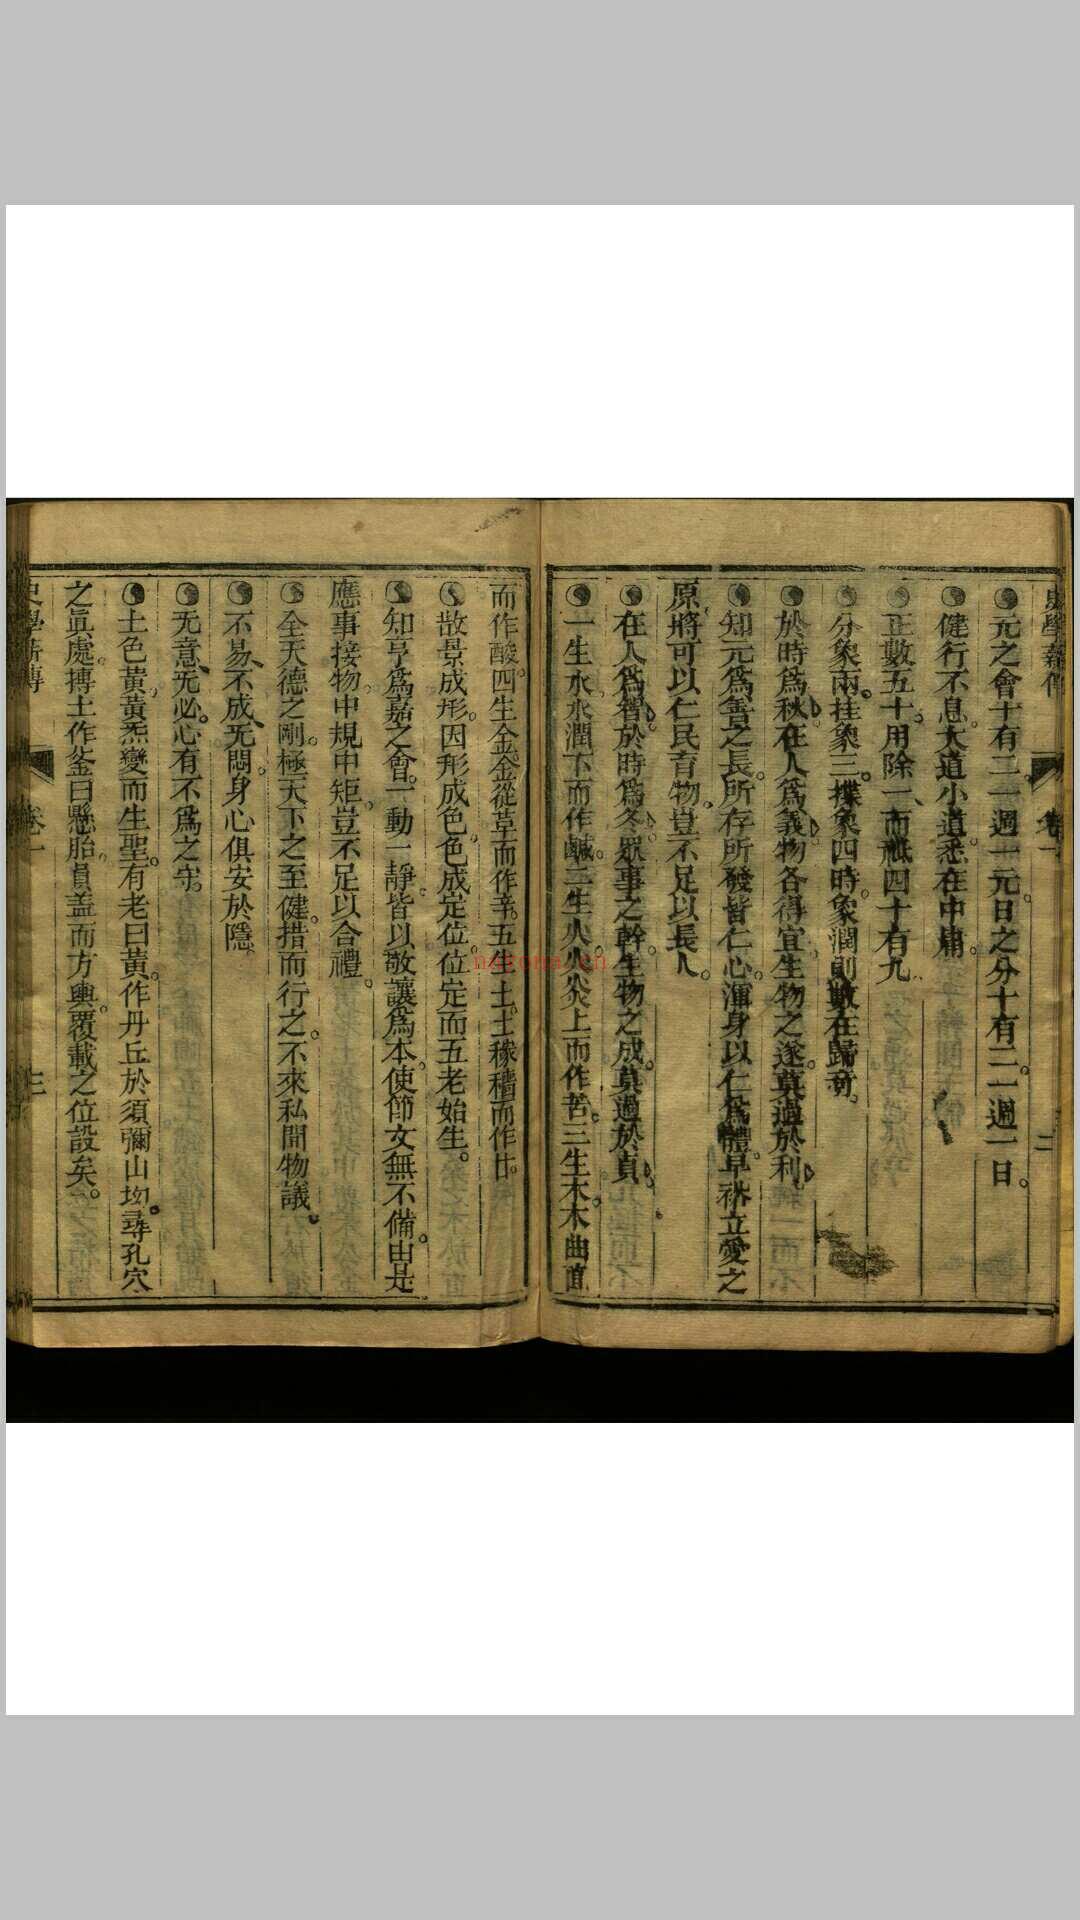 卷一
二
元之會十有二。一週一元。日之分十有二。一週一日。
健行不息。大道小道。悉在中庸。
正數五十。用除一而祗四十有九
分象兩。挂象三。揲象四時。象潤則數在歸奇。
於時爲秋。在人爲義。物各得宜。生物之遂。莫過於利。
知元爲善之長。所存所發皆仁心。渾身以仁爲體。早裕立愛之
原。將可以仁民育物。豈不足以長人。
在人爲智。於時爲冬。眾事之幹。生物之成。莫過於貞。
一生水。水潤下而作鹹。二生火。火炎上而作苦。三生木。木曲直
而作酸。四生金。金從革而作辛。五生土。土稼穡而作甘。
故景成形。因形成色。色成定位。位定而五老始生。
知亨爲嘉之會。一動一靜。皆以敬讓爲本。使節文無不備。由是
應事接物。中規中矩。豈不足以合禮。
全天德之剛。極天下之至健。措而行之。不來私閒物議。
不易。不成。无悶。身心俱安於隱。
无意。无必。心有不爲之守。
土色黃。黃炁變而生聖。有老曰黃。作丹丘於須彌山坳。尋孔穴
之眞處。摶土作釜曰懸胎。員蓋而方輿。覆載之位設矣。
卷一
三
natona.cn